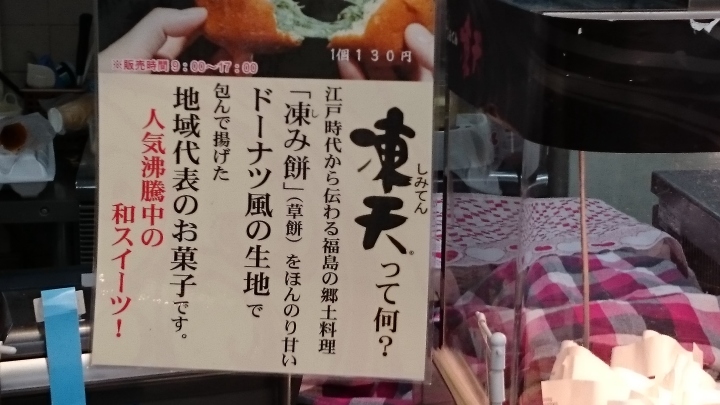 1個130円
※販売時間9:00～17:00
凍天®って何？
しみてん
江戸時代から伝わる福島の郷土料理
「凍み餅」（草餅）をほんのり甘い
し
ドーナツ風の生地で
包んで揚げた
地域代表のお菓子です。
人気沸騰中の
和スイーツ！